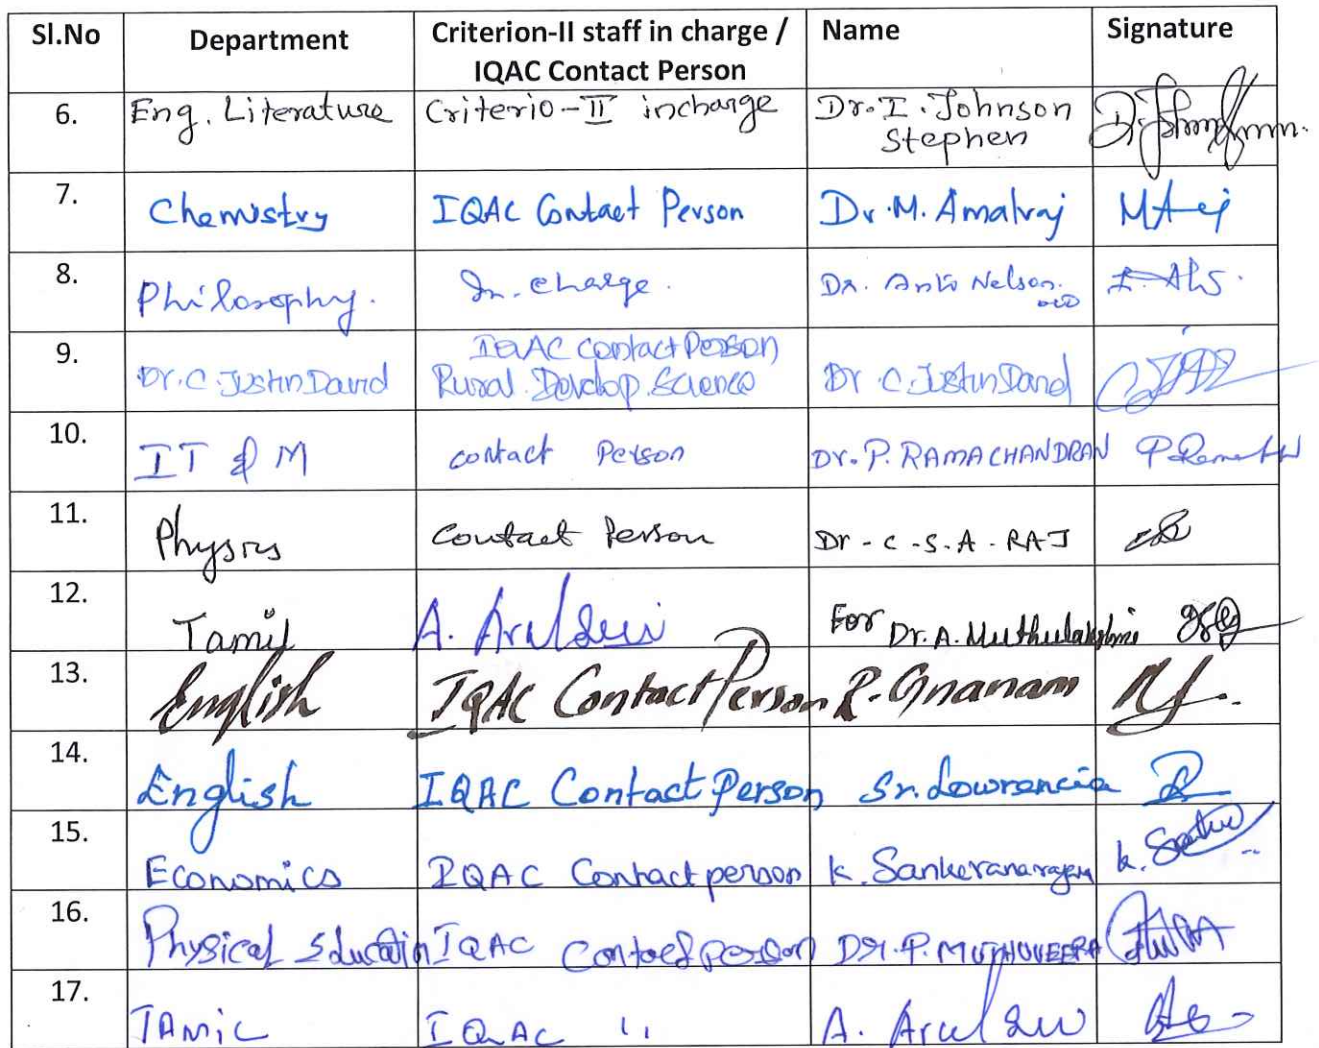 Sl.No Department Criterion-II staff in charge / Name Signature
IQAC Contact Person
6. Eng. Literature Criterio-II incharge Dr. I. Johnson
Stephen
7. Chemistry IQAC Contact Person Dr. M. Amalraj
8. Philosophy. In. charge. Dr. Anto Nelson.
9. IQAC Contact Person
Dr. C. Justin David Rural Develop. Science Dr C. Justin David
10. IT & M contact Person Dr. P. RAMACHANDRAN
11. Physics Contact Person Dr - C - S. A - RAJ
12. Tamil For Dr. A. Muthulakshmi
13. English IQAC Contact Person R. Gnanam
14. English IQAC Contact Person Sr. Lowrencia
15. Economics IQAC Contact person K. Sankaranarayan
16. Physical Education IQAC Contact person Dr. P. MUTHUVEERA
17. TAMIL IQAC 11 A.